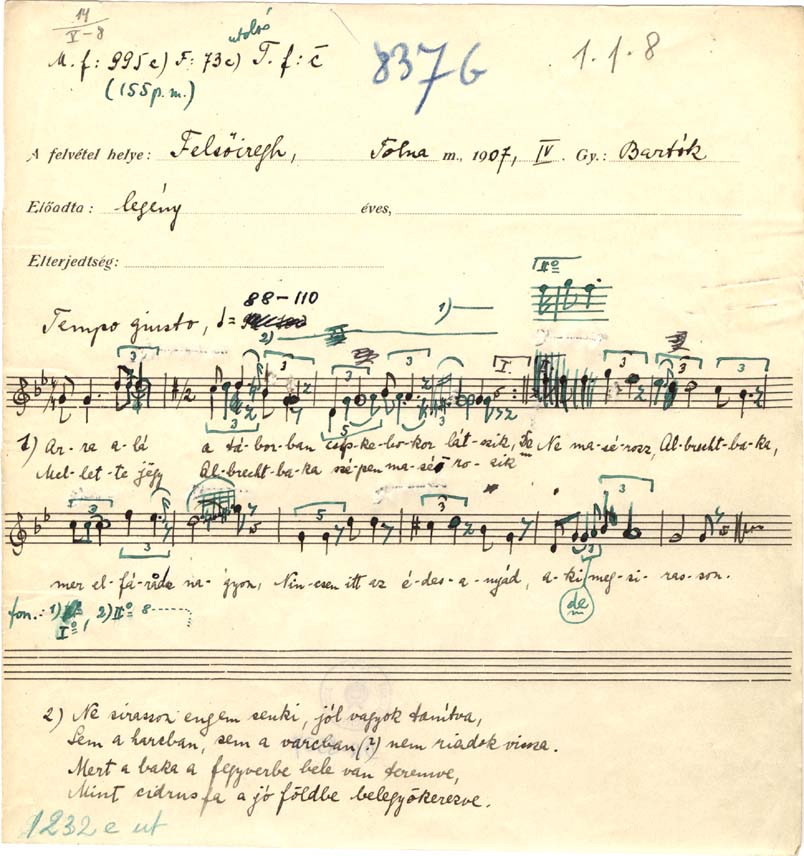 14
V-8
utolsó
M. f: 995e) F: 73c) T. f: c
(155 p. m.)
837 b
1. 1. 8
A felvétel helye: Felsőiregh, Tolna m., 1907, IV. Gy.: Bartók
Előadta: legény éves,
Elterjedtség:
IIº
88-110
Tempo giusto,
1)
2)
3 3 3 I. 3 3 3
3 5
1) Ar-ra a-lá a tá-bor-ban csip-ke-bo-kor lát-szik, De Ne ma-sé-rozz, Al-brecht-ba-ka,
Mel-let-te jégy Al-brecht-ba-ka szé-pen ma-sé-ro-zik
3 5 3 3
3 3
mer el-fá-radsz na-gyon, Nin-csen itt az é-des-a-nyád, a-ki meg-si-ras-son.
de
fon.: 1) Iº, 2) IIº 8
2) Ne sirasson engem senki, jól vagyok tanítva,
Sem a harcban, sem a varcban (?) nem riadok vissza.
Mert a baka a fegyverbe bele van teremve,
Mint cidrusfa a jó földbe belegyökerezve.
1232 e ut